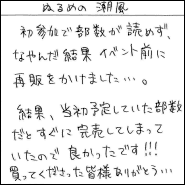 ぬるめの 潮風
初参加で部数が読めず、
なやんだ結果イベント前に
再販をかけました…。
結果、当初予定していた部数
だとすぐに完売してしまって
いたので良かったです!!!
買ってくださった皆様ありがとう…